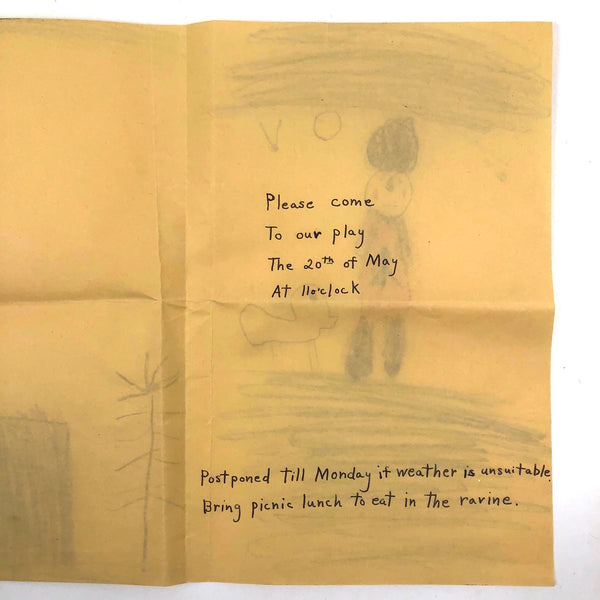 Please come
To our play
The 20th of May
At 11 o'clock
Postponed till Monday if weather is unsuitable.
Bring picnic lunch to eat in the ravine.